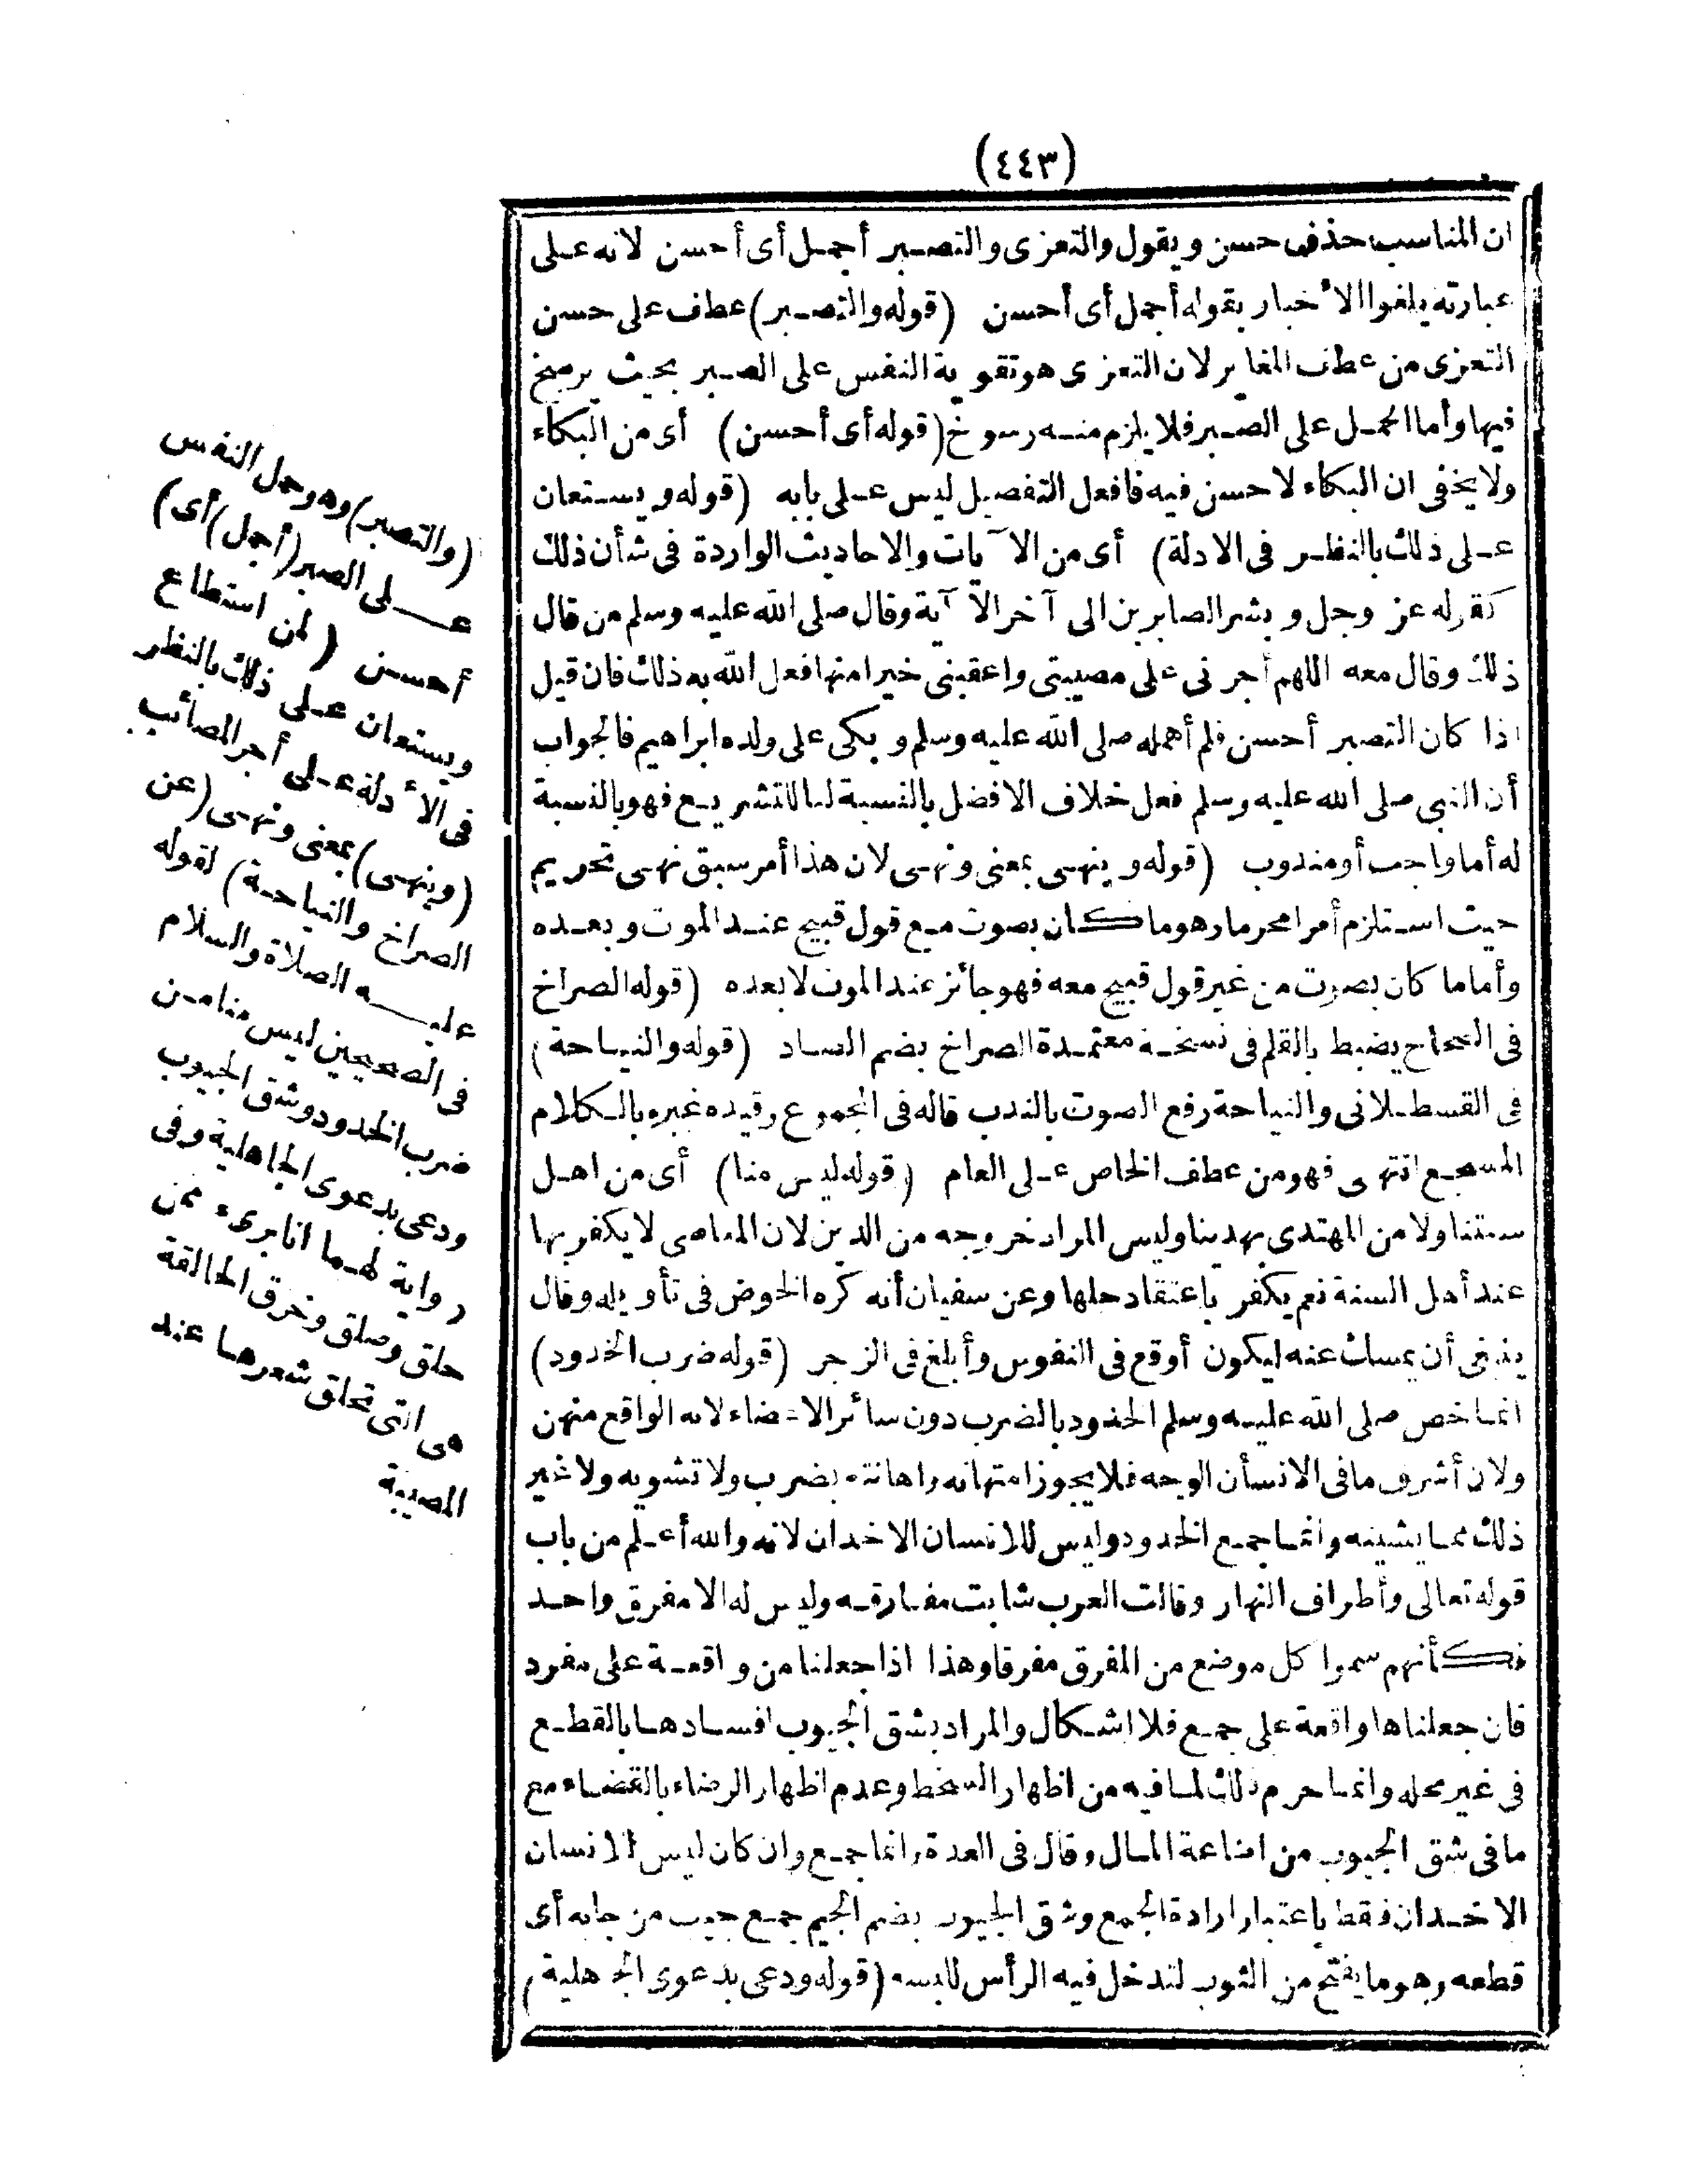 (٤٤٣)
ان المناسب حذف حسن ويقول والتعزى والتصبر أجمل أى أحسن لانه على
عبارته يلغوا الأخبار بقوله أجمل أى أحسن (قوله والتصبر) عطف على حسن
التعزى من عطف المغاير لان التعزى هو تقوية النفس على الصبر بحيث يرسخ
فيها وأما الحمل على الصبر فلا يلزم منه رسوخ (قوله أى أحسن) أى من البكاء
ولا يخفى ان البكاء لا حسن فيه فافعل التفضيل ليس على بابه (قوله ويستعان
على ذلك بالنظر فى الادلة) أى من الآيات والاحاديث الواردة فى شأن ذلك
كقوله عز وجل وبشر الصابرين الى آخر الآية وقال صلى الله عليه وسلم من قال
ذلك وقال معه اللهم أجرنى على مصيبتى واعقبنى خيرا منها فعل الله به ذلك فان قيل
اذا كان التصبر أحسن فلم أهمله صلى الله عليه وسلم وبكى على ولده ابراهيم فالجواب
أن النبى صلى الله عليه وسلم فعل خلاف الافضل بالنسبة لنا للتشريع فهو بالنسبة
له أما واجب أو مندوب (قوله وينهى بمعنى ونهى لان هذا أمر سبق نهى تحريم
حيث استلزم أمرا محرما وهو ما كان بصوت مع قول قبيح عند الموت وبعده
وأما ما كان بصوت من غير قول قبيح معه فهو جائز عند الموت لا بعده (قوله الصراخ
فى الصحاح يضبط بالقلم فى نسخة معتمدة الصراخ بضم الصاد (قوله والنياحة)
فى القسطلانى والنياحة رفع الصوت بالندب قاله فى المجموع وقيده غيره بالكلام
المسجع انتهى فهو من عطف الخاص على العام (قوله ليس منا) أى من اهل
سنتنا ولا من المهتدى بهدينا وليس المراد خروجه من الدين لان المعاصى لا يكفر بها
عند أهل السنة نعم يكفر باعتقاد حلها وعن سفيان أنه كره الخوض فى تأويله وقال
ينبغى أن يمسك عنه ليكون أوقع فى النفوس وأبلغ فى الزجر (قوله ضرب الخدود)
انما خص صلى الله عليه وسلم الخدود بالضرب دون سائر الاعضاء لانه الواقع منهن
ولان أشرف ما فى الانسأن الوجه فلا يجوز امتهانه واهانته بضرب ولا تشويه ولا غير
ذلك مما يشينه وانما جمع الخدود وليس للانسان الاخدان لانه والله أعلم من باب
قوله تعالى وأطراف النهار وقالت العرب شابت مفارقه وليس له الا مفرق واحد
فكأنهم سموا كل موضع من المفرق مفرقا وهذا اذا جعلنا من واقعة على مفرد
فان جعلناها واقعة على جمع فلا اشكال والمراد بشق الجيوب افسادها بالقطع
فى غير محله وانما حرم ذلك لما فيه من اظهار السخط وعدم اظهار الرضاء بالقضاء مع
ما فى شق الجيوب من اضاعة المال وقال فى العدة وانما جمع وان كان ليس للانسان
الاخدان فقط باعتبار ارادة الجمع وشق الجيوب بضم الجيم جمع جيب من جابه أى
قطعه وهو ما يفتح من الثوب لتدخل فيه الرأس للبسه (قوله ودعى بدعوى الجاهلية)
(والتصبر) وهو حمل النفس
على الصبر (أجمل) أى)
أحسن (لمن استطاع
ويستعان على ذلك بالنظر
فى الأدلة على أجر المصائب
(وينهى) بمعنى ونهى (عن
الصراخ والنياحة) لقوله
عليه الصلاة والسلام
فى الصحيحين ليس منا من
ضرب الخدود وشق الجيوب
ودعى بدعوى الجاهلية وفى
رواية لهما انا برىء ممن
حلق وصلق وخرق الحالقة
هى التى تحلق شعرها عند
المصيبة